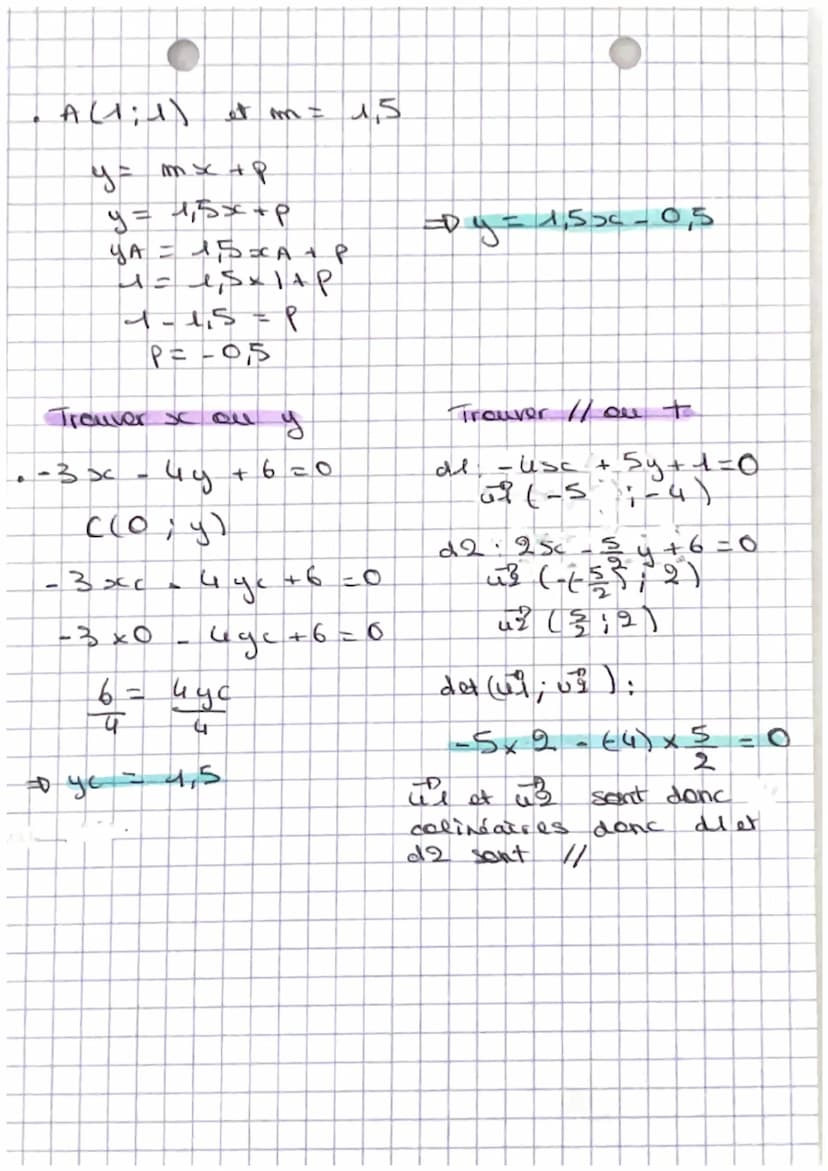 . A(1;1) et m = 1,5
y = mx + p
y = 1,5x + p
yA = 1,5xA + p
1 = 1,5 × 1 + p
1 - 1,5 = p
p = -0,5
⇒ y = 1,5x - 0,5
Trouver x ou y
. -3x - 4y + 6 = 0
C(0 ; y)
-3xc - 4yc + 6 = 0
-3 × 0 - 4yc + 6 = 0
6/4 = 4yc/4
⇒ yc = 1,5
Trouver // ou +
d1 : -4x + 5y + 1 = 0
u⃗1 (-5 ; -4)
d2 : 2x - 5/2 y + 6 = 0
u⃗2 (-(-5/2) ; 2)
u⃗2 (5/2 ; 2)
det (u⃗1 ; u⃗2) :
-5 × 2 - (-4) × 5/2 = 0
u⃗1 et u⃗2 sont donc
colinéaires donc d1 et
d2 sont //